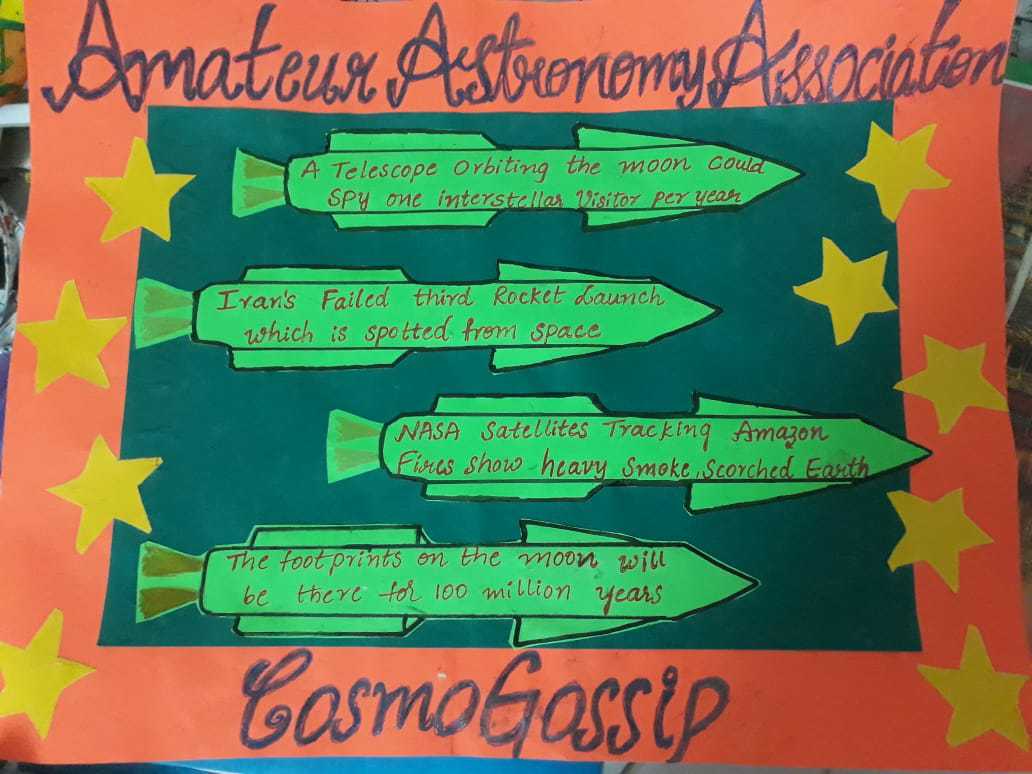 Amateur Astronomy Association
A Telescope Orbiting the moon Could
SPY one interstellar Visitor Per year
Iran's Failed third Rocket Launch
which is spotted from space
NASA Satellites Tracking Amazon
Fires show heavy smoke, Scorched Earth
The footprints on the moon will
be there for 100 million years
CosmoGossip